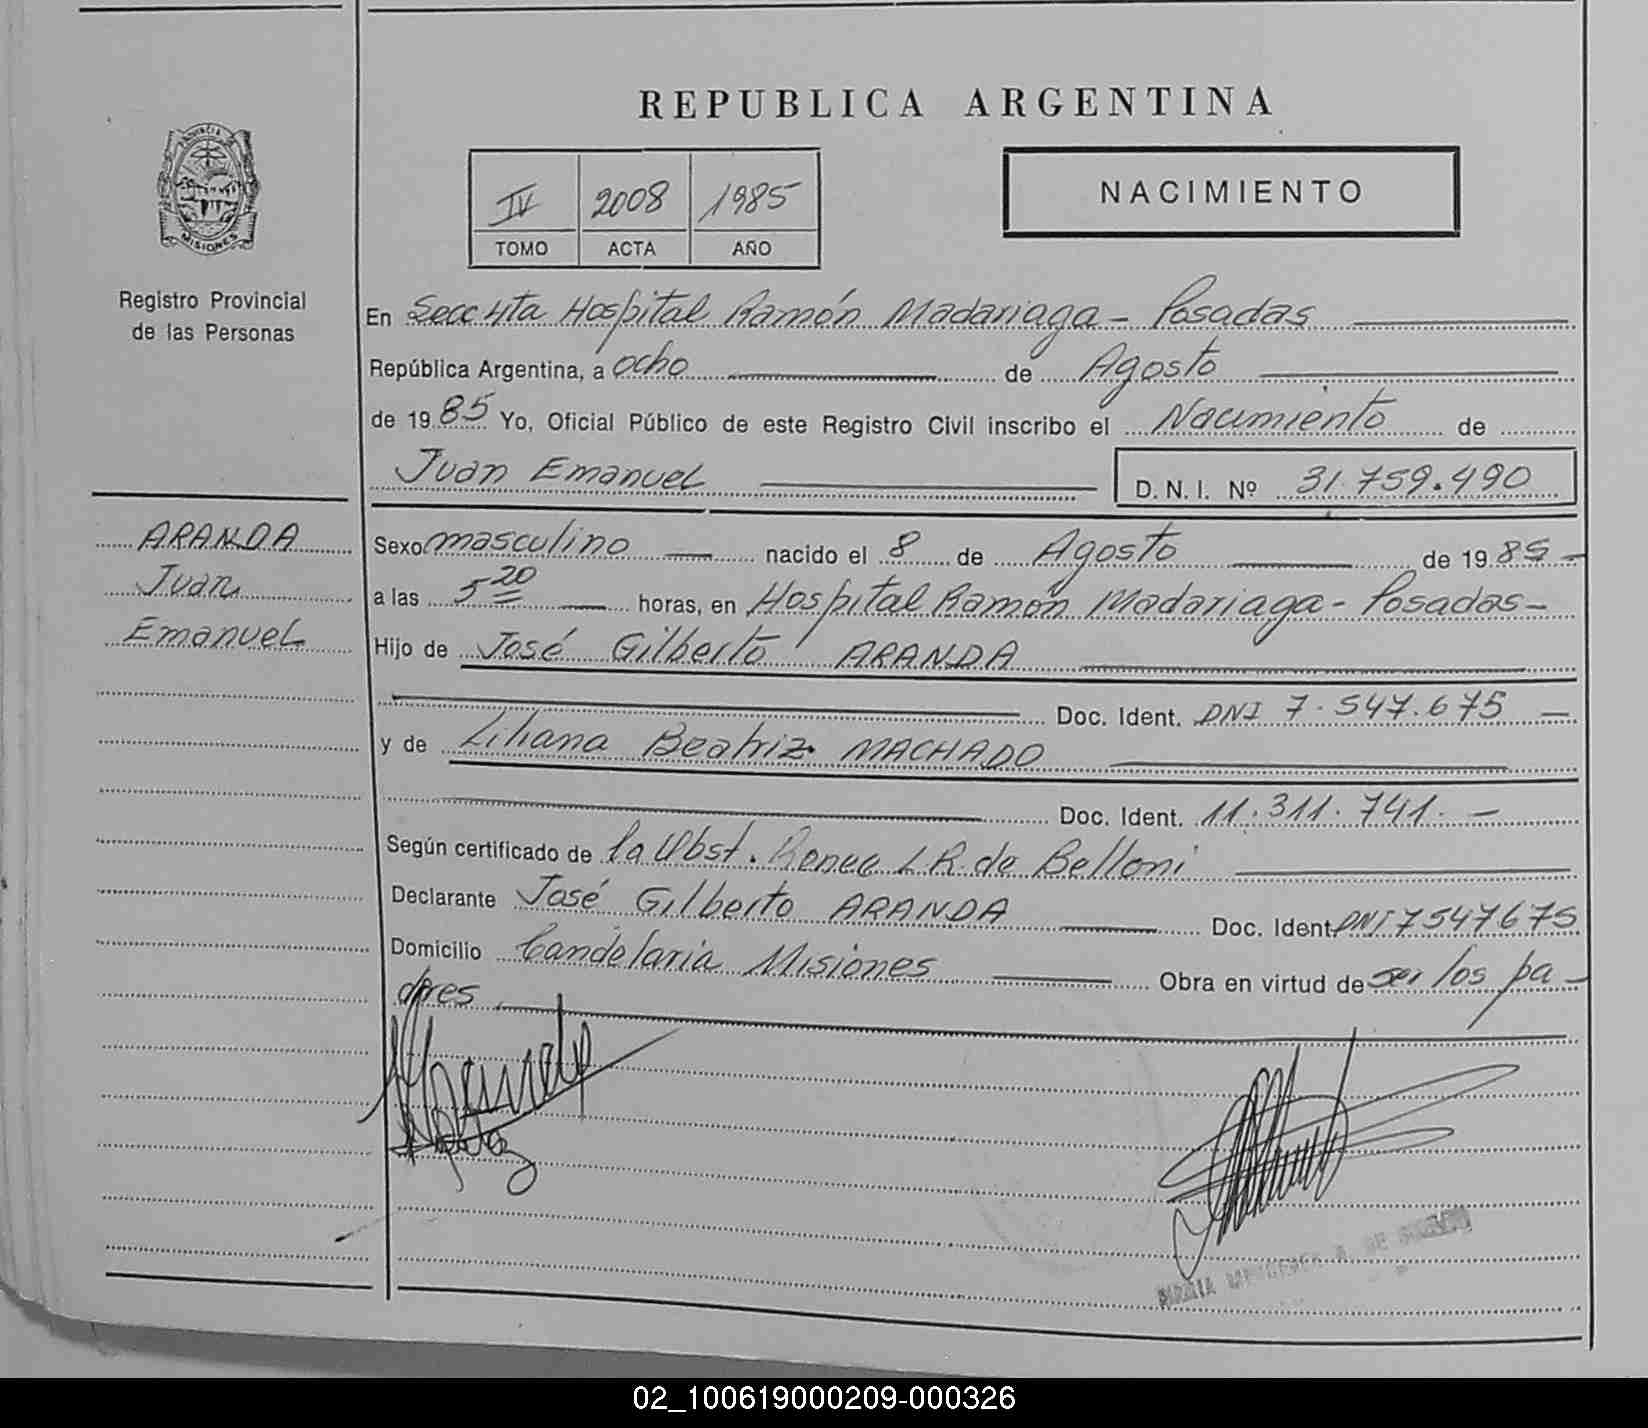 REPUBLICA ARGENTINA
PROVINCIA
MISIONES
Registro Provincial
de las Personas
IV 2008 1985
TOMO ACTA AÑO
NACIMIENTO
En Secc 4ta Hospital Ramón Madariaga - Posadas
República Argentina, a ocho de Agosto
de 1985 Yo, Oficial Público de este Registro Civil inscribo el Nacimiento de
Juan Emanuel D. N. I. Nº 31.759.490
ARANDA
Juan
Emanuel
Sexo masculino nacido el 8 de Agosto de 1985 -
a las 5 20 horas, en Hospital Ramón Madariaga - Posadas -
Hijo de José Gilberto ARANDA
Doc. Ident. DNI 7.547.675 -
y de Liliana Beatriz MACHADO
Doc. Ident. 11.311.741. -
Según certificado de la Obst. Renee L.R. de Belloni
Declarante José Gilberto ARANDA Doc. Ident DNI 7547675
Domicilio Candelaria Misiones Obra en virtud de ser los pa-
dres
MARIA A. DE
02_100619000209-000326